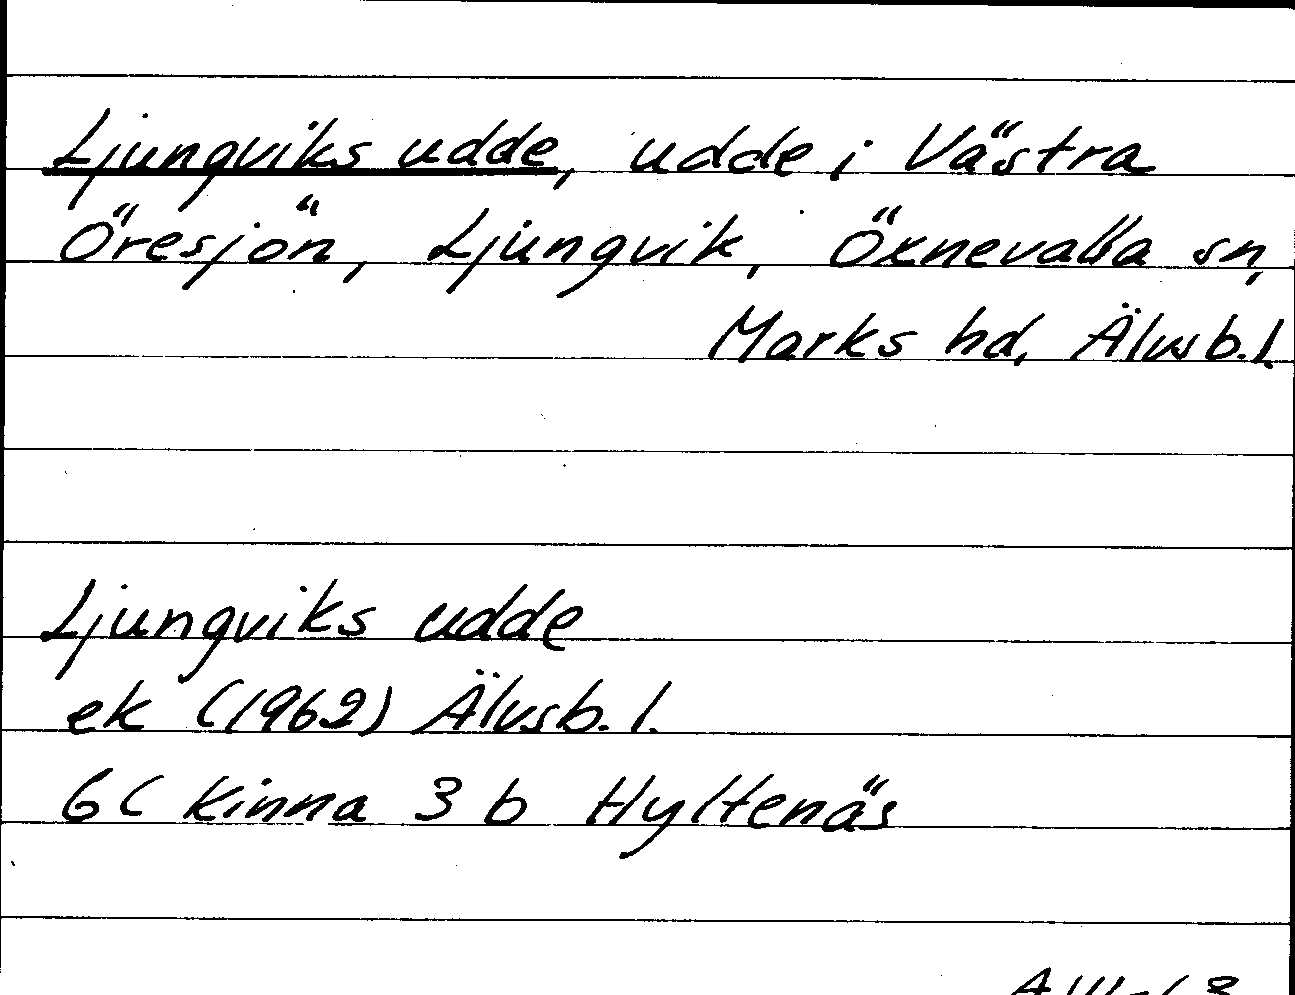 Ljungviks udde, udde i Västra
Öresjön, Ljungvik, Öxnevalla sn,
Marks hd, Älvsb. l.
Ljungviks udde
ek (1962) Älvsb. l.
6C Kinna 3 b Hyltenäs